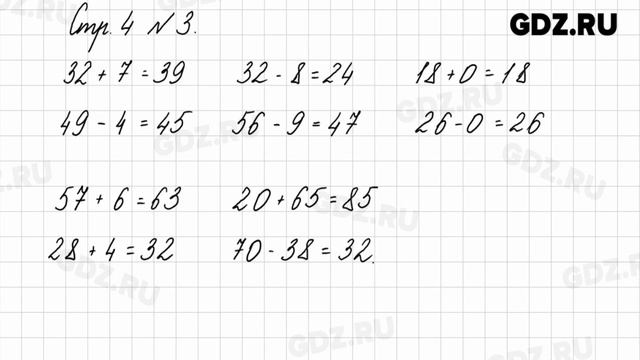 Стр. 4 №3.
GDZ.RU
32 + 7 = 39 32 - 8 = 24 18 + 0 = 18
49 - 4 = 45 56 - 9 = 47 26 - 0 = 26
57 + 6 = 63 20 + 65 = 85
28 + 4 = 32 70 - 38 = 32.
GDZ.RU
GDZ.RU
GDZ.RU
GDZ.RU
GDZ.RU
GDZ.RU
GDZ.RU